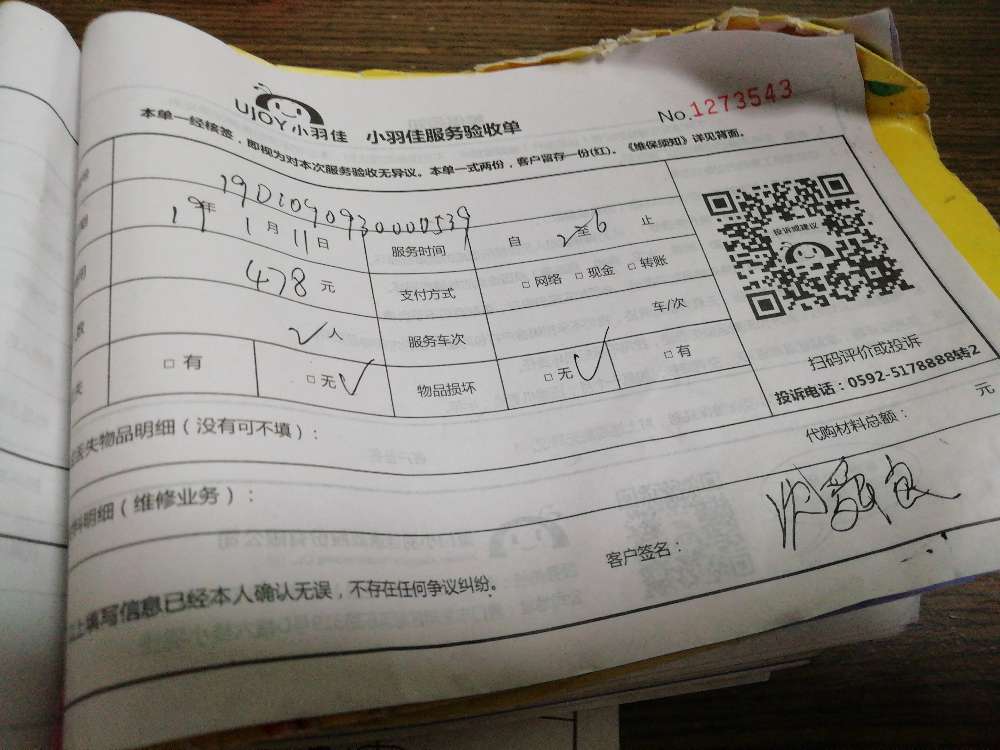 UJOY小羽佳 小羽佳服务验收单 No.1273543
本单一经核签，即视为对本次服务验收无异议。本单一式两份，客户留存一份(红)。《维保须知》详见背面。
19010409300000539
19年1月11日 服务时间 自 2至6 止
478元 支付方式 □ 网络 □ 现金 □ 转账
2人 服务车次 车/次
□ 有 □ 无 ✓ 物品损坏 □ 无 ✓ □ 有
投诉或建议
扫码评价或投诉
投诉电话：0592-5178888转2
失物品明细（没有可不填）：
料明细（维修业务）： 代购材料总额： 元
上填写信息已经本人确认无误，不存在任何争议纠纷。 客户签名：